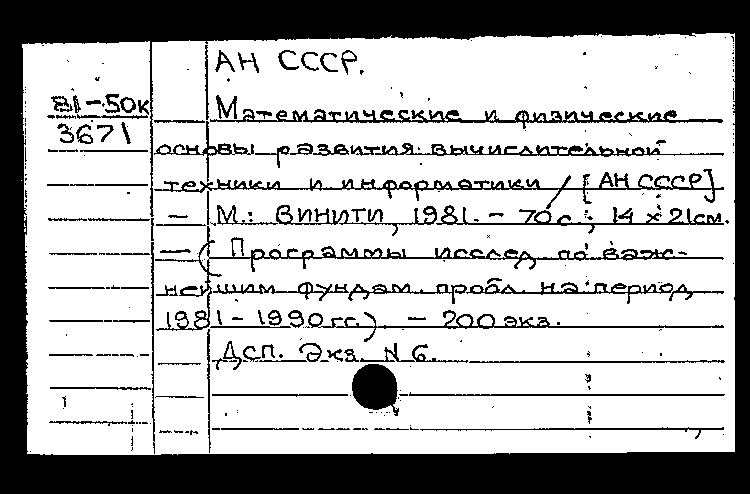 АН СССР.
81-50к
3671
Математические и физические
основы развития вычислительной
техники и информатики / [АН СССР]
— М.: ВИНИТИ, 1981. - 70 с.; 14 х 21см.
— (Программы исслед. по важ-
нейшим фундам. пробл. на период
1981-1990 гг.). - 200 экз.
Дсп. Экз. N 6.